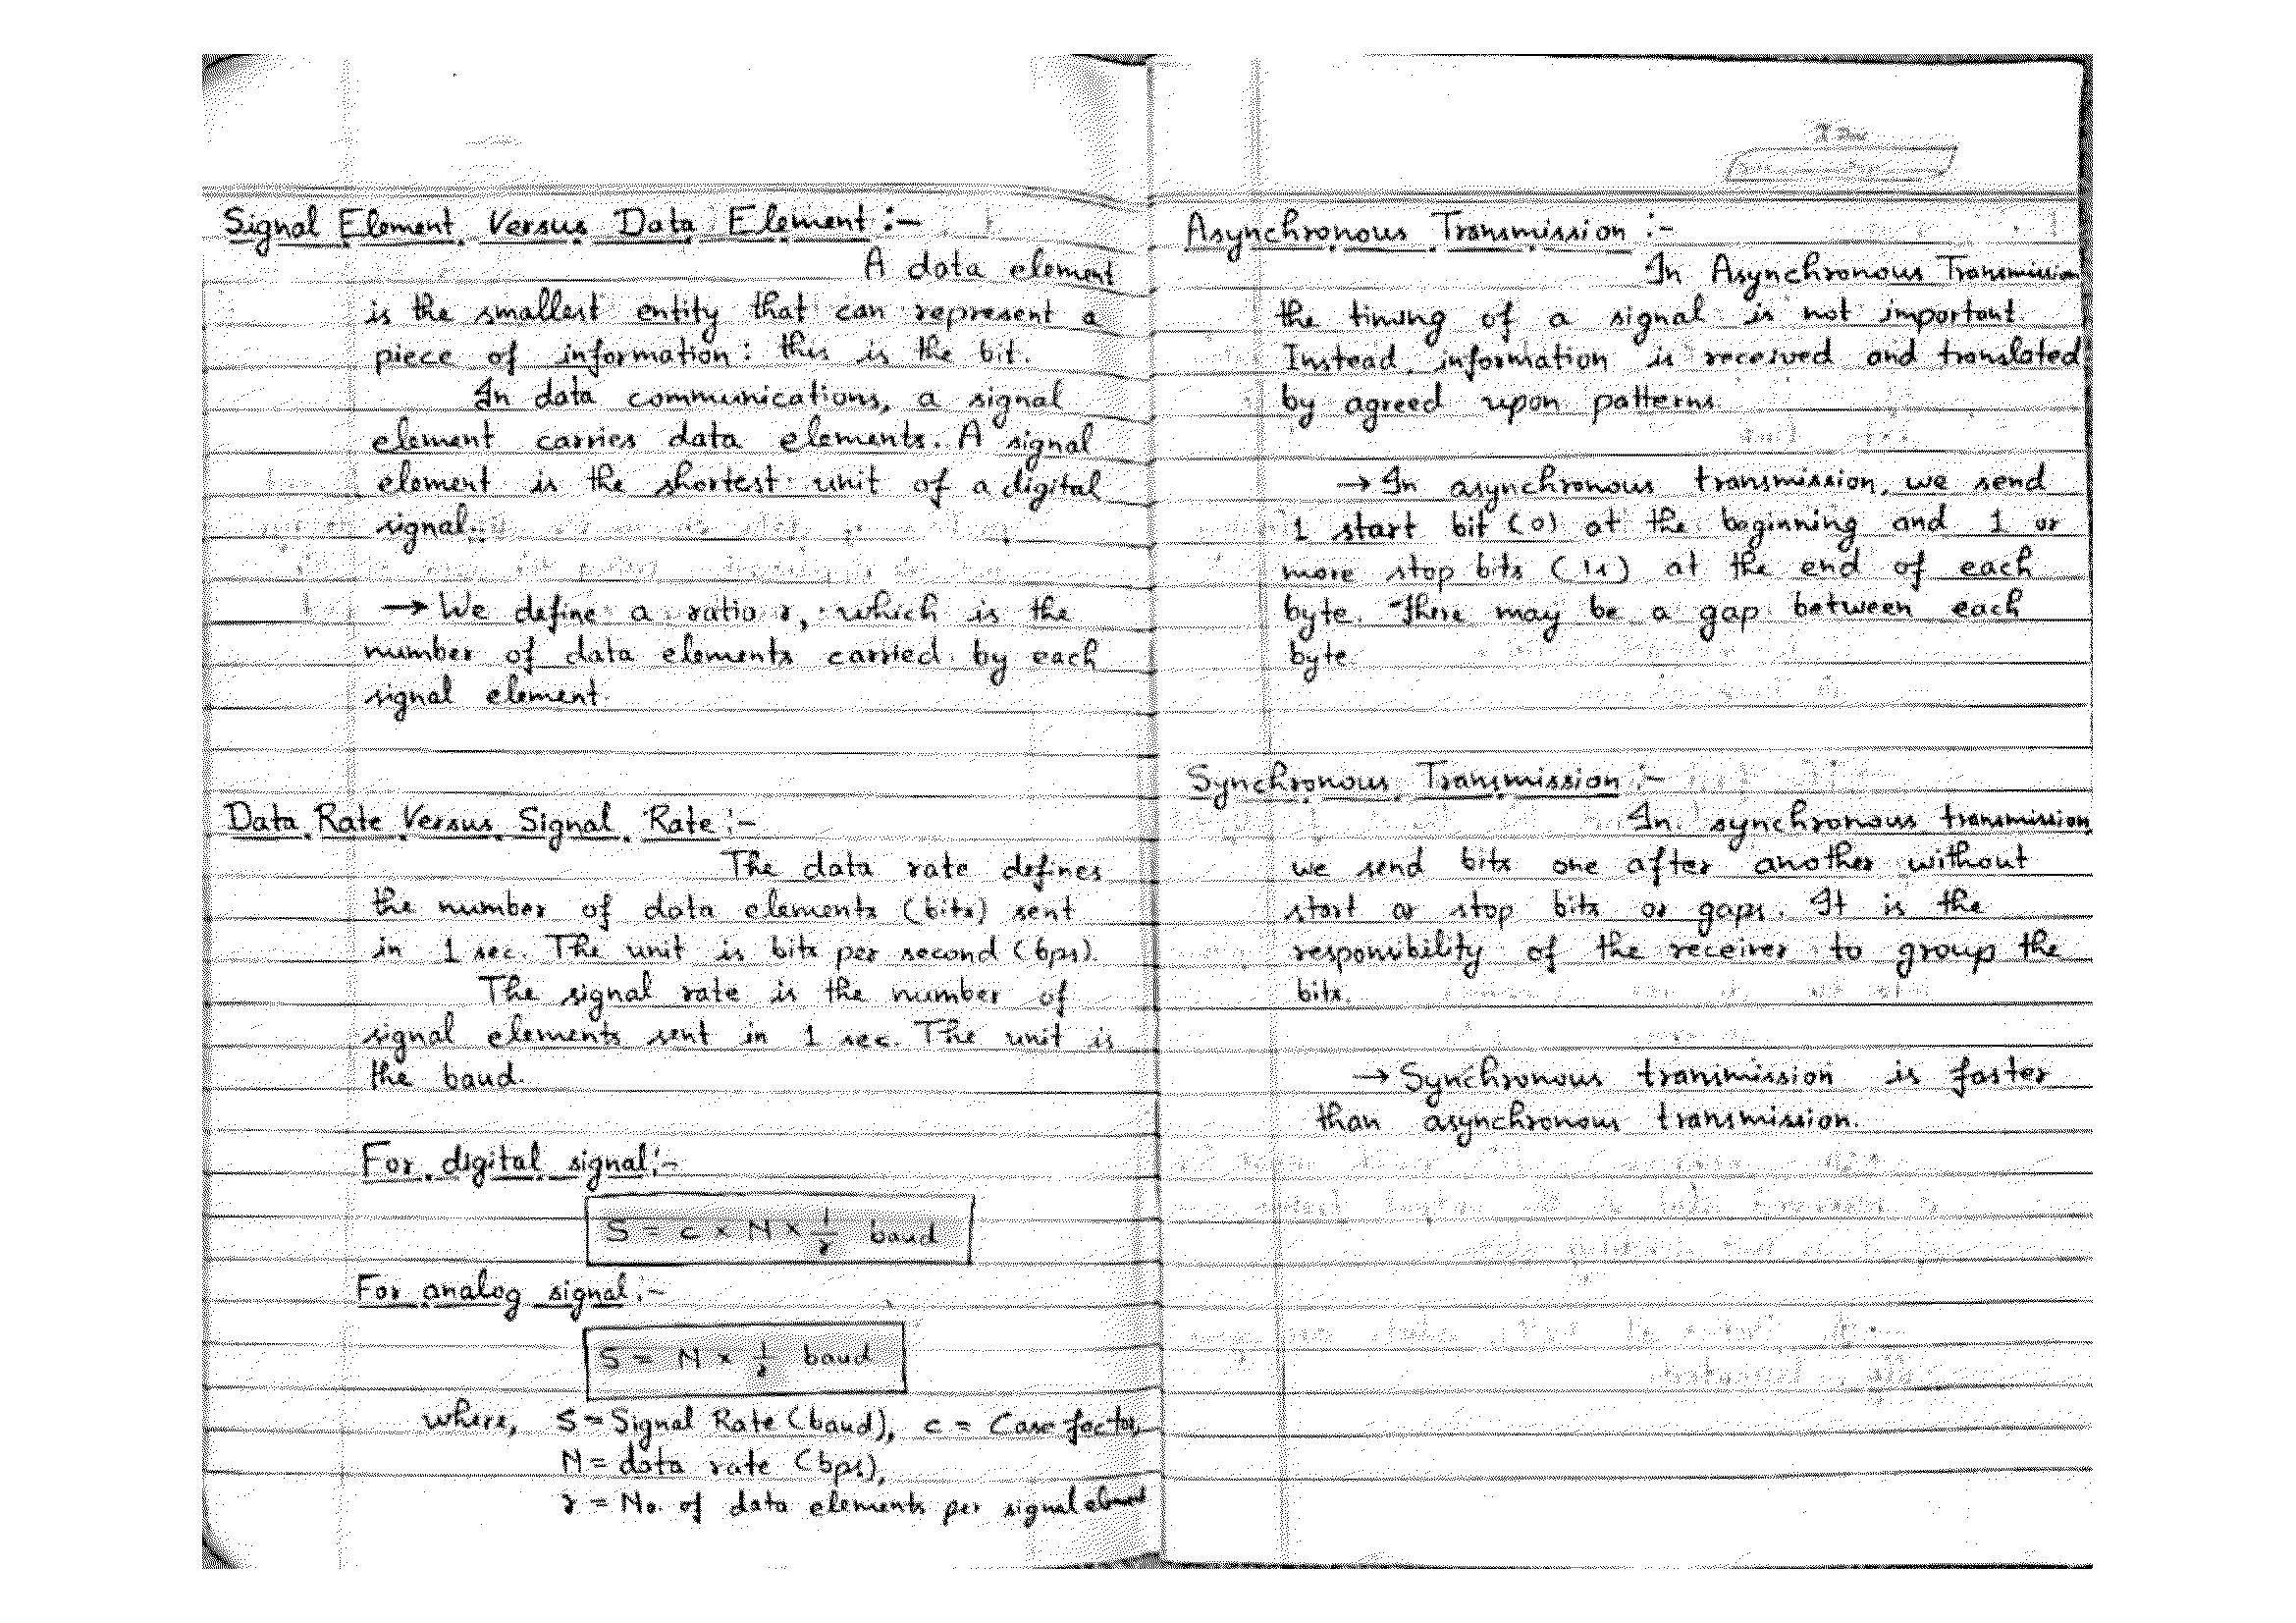 Signal Element Versus Data Element :-
A data element
is the smallest entity that can represent a
piece of information: this is the bit.
In data communications, a signal
element carries data elements. A signal
element is the shortest unit of a digital
signal.
→ We define a ratio r, which is the
number of data elements carried by each
signal element.
Data Rate Versus Signal Rate :-
The data rate defines
the number of data elements (bits) sent
in 1 sec. The unit is bits per second (bps).
The signal rate is the number of
signal elements sent in 1 sec. The unit is
the baud.
For digital signal :-
S = c × N × 1/r baud
For analog signal :-
S = N × 1/r baud
where, S = Signal Rate (baud), c = Case factor,
N = data rate (bps),
r = No. of data elements per signal element
Asynchronous Transmission :-
In Asynchronous Transmission
the timing of a signal is not important.
Instead, information is received and translated
by agreed upon patterns.
→ In asynchronous transmission, we send
1 start bit (0) at the beginning and 1 or
more stop bits (1s) at the end of each
byte. There may be a gap between each
byte.
Synchronous Transmission :-
In synchronous transmission
we send bits one after another without
start or stop bits or gaps. It is the
responsibility of the receiver to group the
bits.
→ Synchronous transmission is faster
than asynchronous transmission.